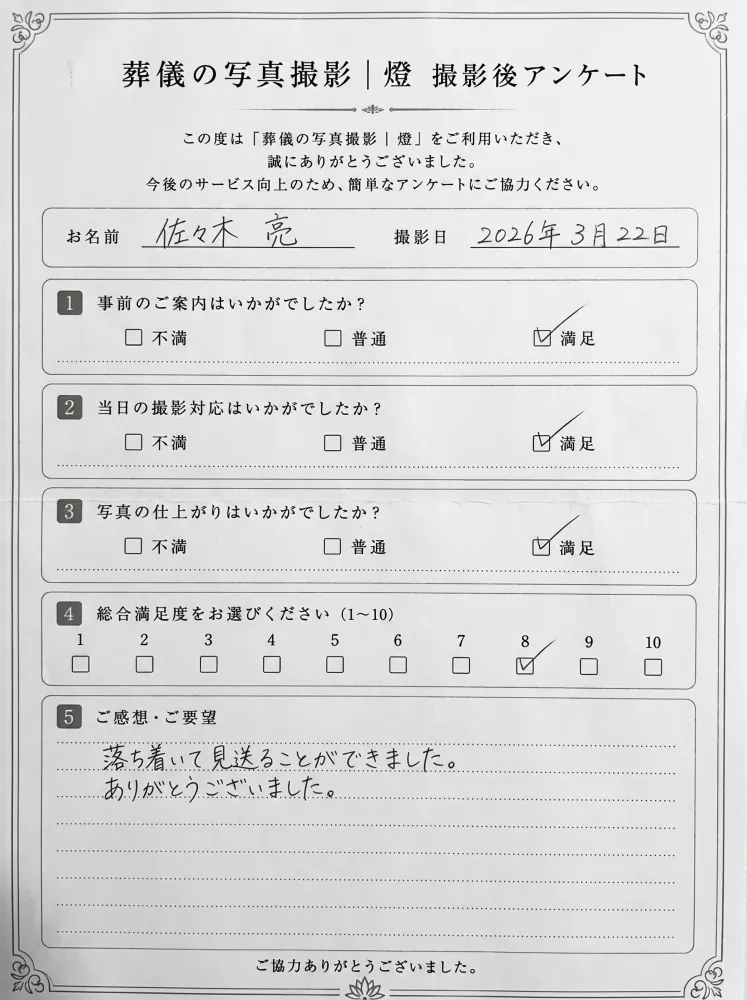 葬儀の写真撮影｜燈 撮影後アンケート
この度は「葬儀の写真撮影｜燈」をご利用いただき、
誠にありがとうございました。
今後のサービス向上のため、簡単なアンケートにご協力ください。
お名前 佐々木 亮 撮影日 2026年3月22日
1 事前のご案内はいかがでしたか？
□ 不満 □ 普通 ☑ 満足
2 当日の撮影対応はいかがでしたか？
□ 不満 □ 普通 ☑ 満足
3 写真の仕上がりはいかがでしたか？
□ 不満 □ 普通 ☑ 満足
4 総合満足度をお選びください（1〜10）
1 2 3 4 5 6 7 8 9 10
□ □ □ □ □ □ □ ☑ □ □
5 ご感想・ご要望
落ち着いて見送ることができました。
ありがとうございました。
ご協力ありがとうございました。